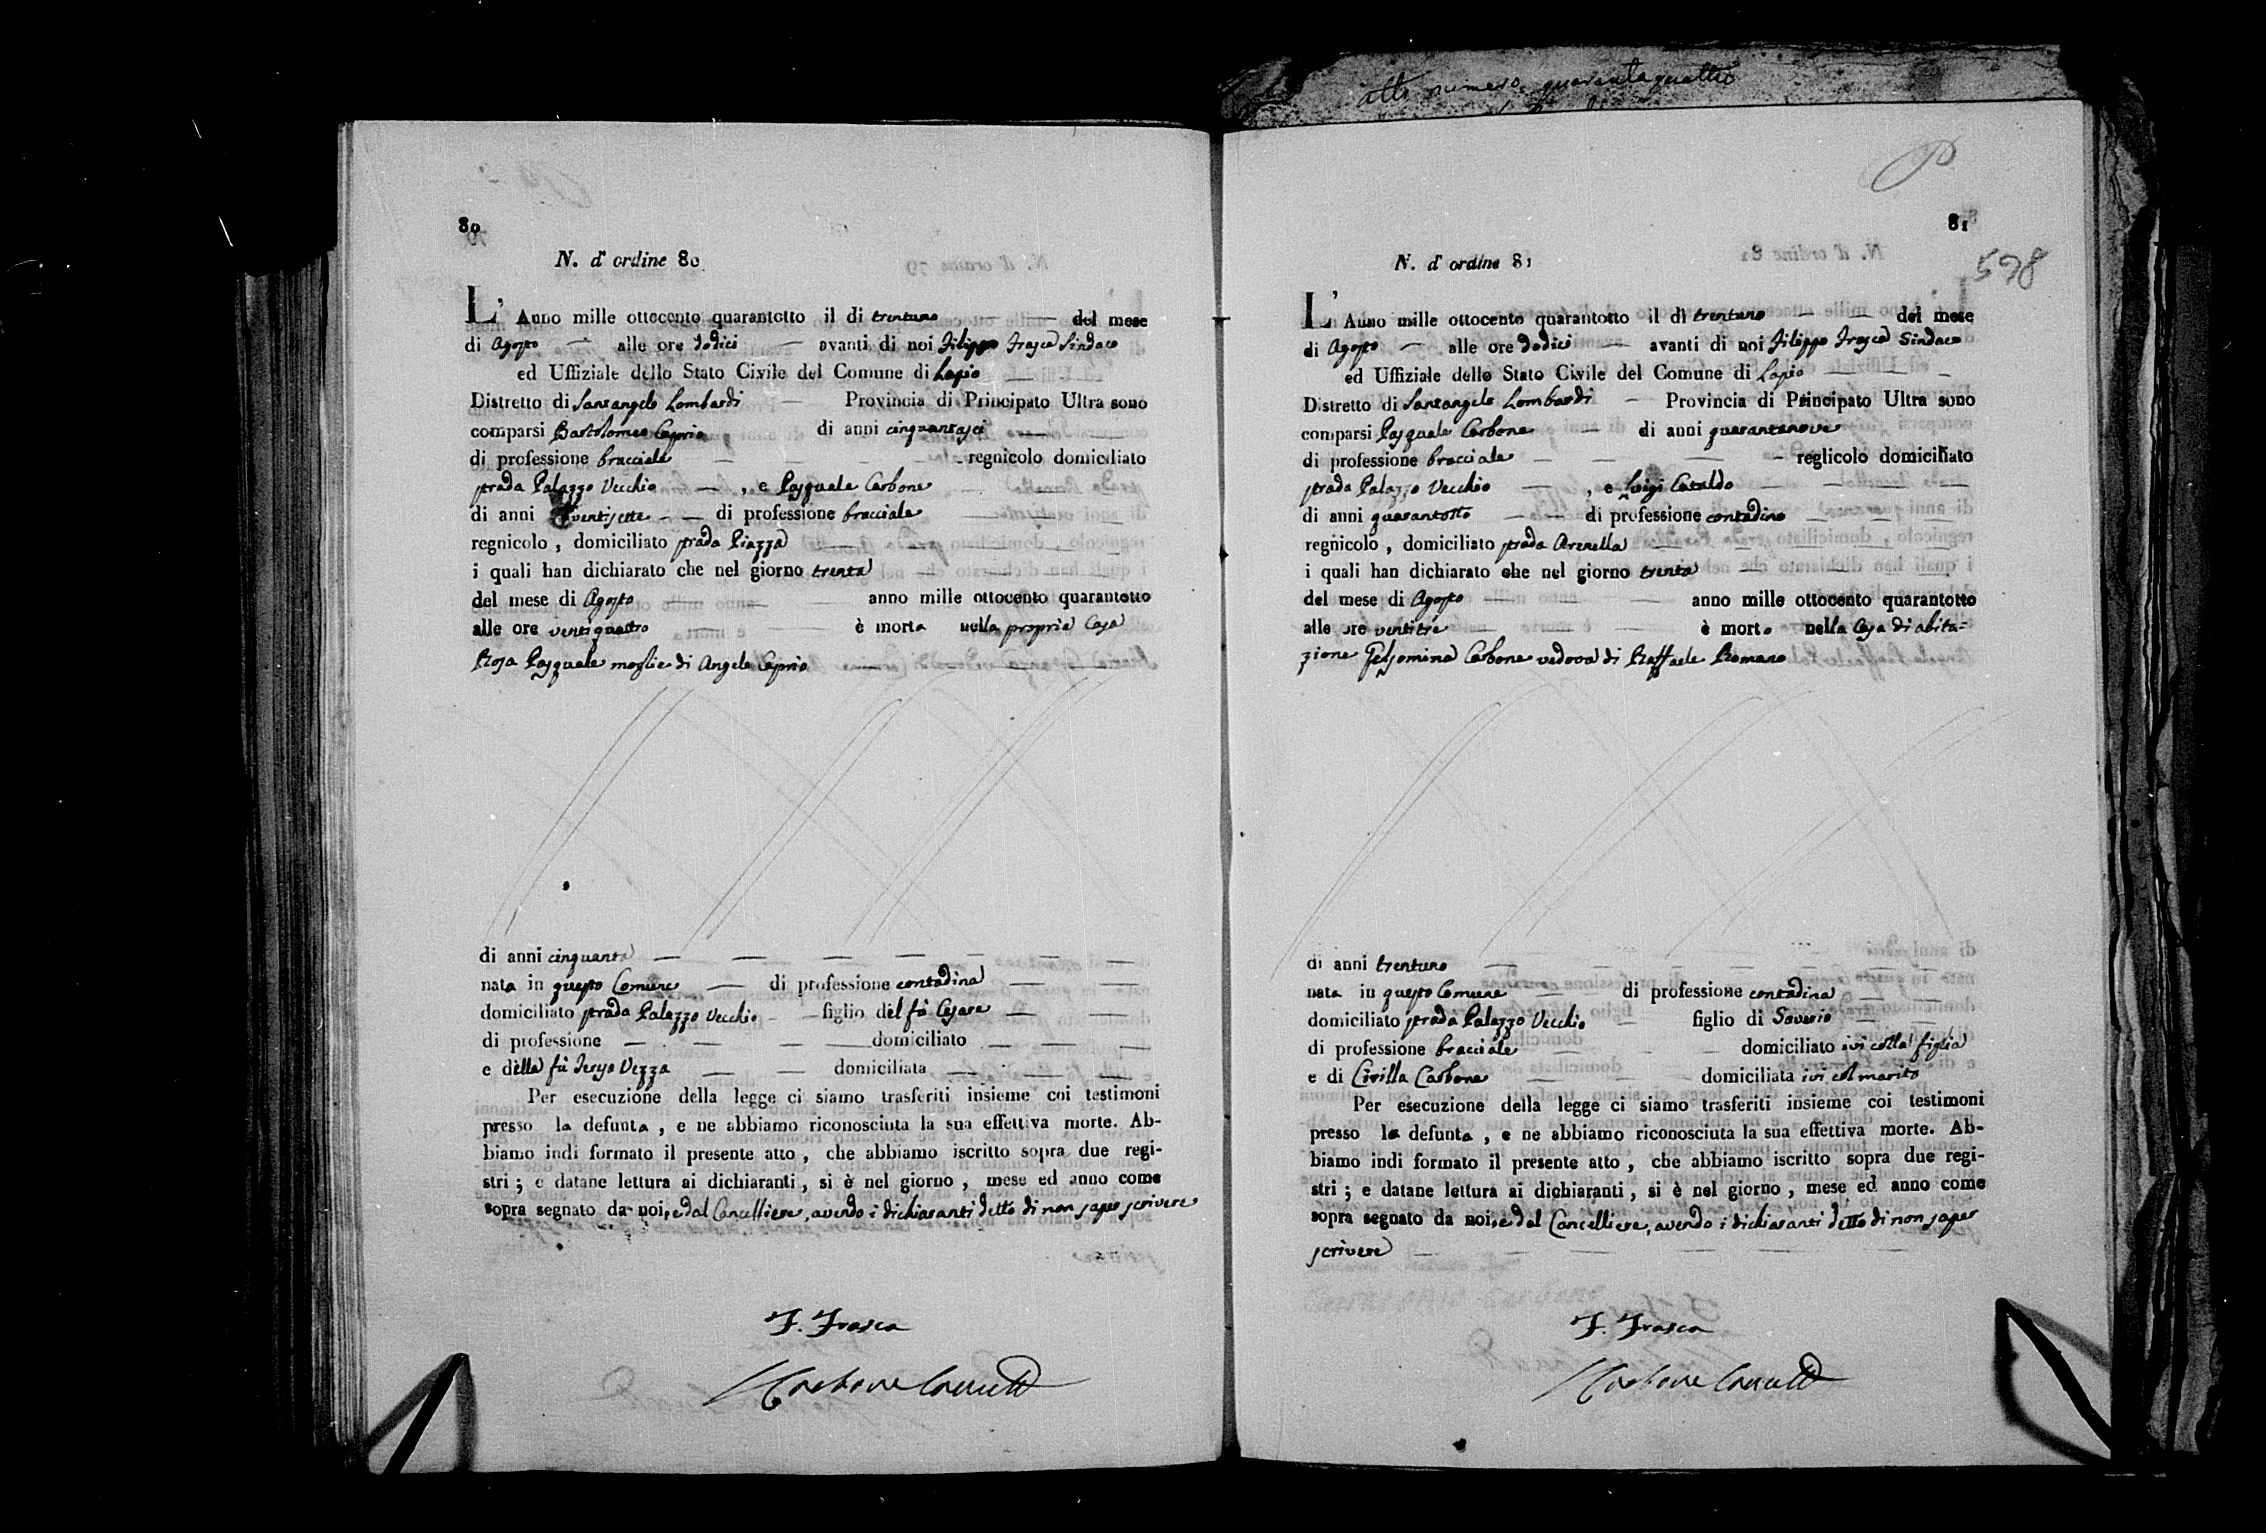 atto numero quarantaquattro
80
N. d'ordine 80
L'Anno mille ottocento quarantotto il dì trentuno del mese
di Agosto alle ore dodici avanti di noi Filippo Frasca Sindaco
ed Uffiziale dello Stato Civile del Comune di Lapio
Distretto di Santangelo Lombardi Provincia di Principato Ultra sono
comparsi Bartolomeo Caprio di anni cinquantasei
di professione bracciale regnicolo domiciliato
strada Palazzo Vecchio , e Pasquale Carbone
di anni ventisette di professione bracciale
regnicolo , domiciliato strada Piazza
i quali han dichiarato che nel giorno trenta
del mese di Agosto anno mille ottocento quarantotto
alle ore ventiquattro è morta nella propria Casa
Rosa Pasquale moglie di Angelo Caprio
di anni cinquanta
nata in questo Comune di professione contadina
domiciliato strada Palazzo Vecchio figlio del fù Cesare
di professione domiciliato
e della fù Vezza domiciliata
Per esecuzione della legge ci siamo trasferiti insieme coi testimoni
presso la defunta , e ne abbiamo riconosciuta la sua effettiva morte. Ab-
biamo indi formato il presente atto , che abbiamo iscritto sopra due regi-
stri ; e datane lettura ai dichiaranti , si è nel giorno , mese ed anno come
sopra segnato da noi, e dal Cancelliere, avendo i dichiaranti detto di non saper scrivere
F. Frasca
Carbone
81
598
N. d'ordine 81
L'Anno mille ottocento quarantotto il dì trentuno del mese
di Agosto alle ore dodici avanti di noi Filippo Frasca Sindaco
ed Uffiziale dello Stato Civile del Comune di Lapio
Distretto di Santangelo Lombardi Provincia di Principato Ultra sono
comparsi Pasquale Carbone di anni quarantanove
di professione bracciale reglicolo domiciliato
strada Palazzo Vecchio , e Luigi Cataldo
di anni quarantotto di professione contadino
regnicolo , domiciliato strada Arenella
i quali han dichiarato che nel giorno trenta
del mese di Agosto anno mille ottocento quarantotto
alle ore ventitrè è morta nella Casa di abita=
zione Gelsomina Carbone vedova di Raffaele Romano
di anni trentuno
nata in questo Comune di professione contadina
domiciliato strada Palazzo Vecchio figlio di Saverio
di professione bracciale domiciliato ivi colla figlia
e di Civilla Carbone domiciliata ivi col marito
Per esecuzione della legge ci siamo trasferiti insieme coi testimoni
presso la defunta , e ne abbiamo riconosciuta la sua effettiva morte. Ab-
biamo indi formato il presente atto , che abbiamo iscritto sopra due regi-
stri ; e datane lettura ai dichiaranti , si è nel giorno , mese ed anno come
sopra segnato da noi, e dal Cancelliere, avendo i dichiaranti detto di non saper
scrivere
F. Frasca
Carbone